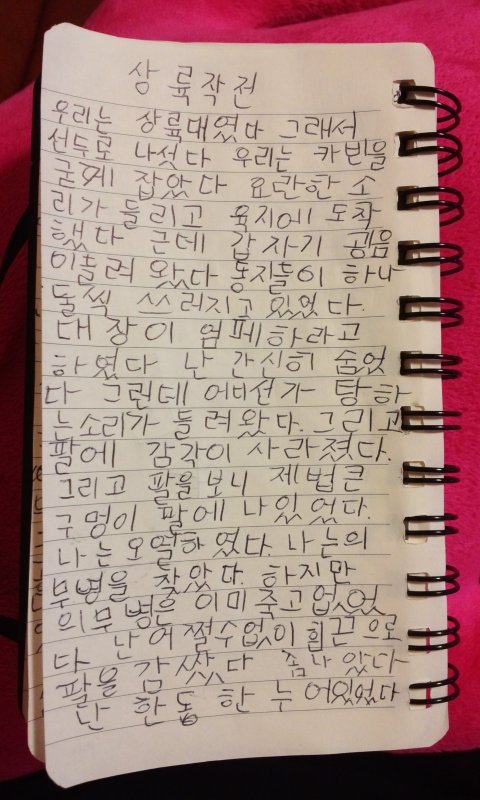 상륙작전
우리는 상륙대였다 그래서
선두로 나섯다 우리는 카빈을
굳게 잡았다 요란한 소
리가 들리고 육지에 도착
했다 근데 갑자기 굉음
이들려 왔다 동지들이 하나
둘씩 쓰러지고 있었다.
대장이 엄페하라고
하였다 난 간신히 숨었
다 그런데 어디선가 탕하
는소리가 들려왔다. 그리고
팔에 감각이 사라졌다.
그리고 팔을보니 제법큰
구멍이 팔에 나있었다.
나는오열하였다. 나는의
무병을 찾았다. 하지만
의무병은 이미죽고없었
다 난어쩔수없이 흰끈으로
팔을감쌌다 좀나았다
난 한동한 누어있었다